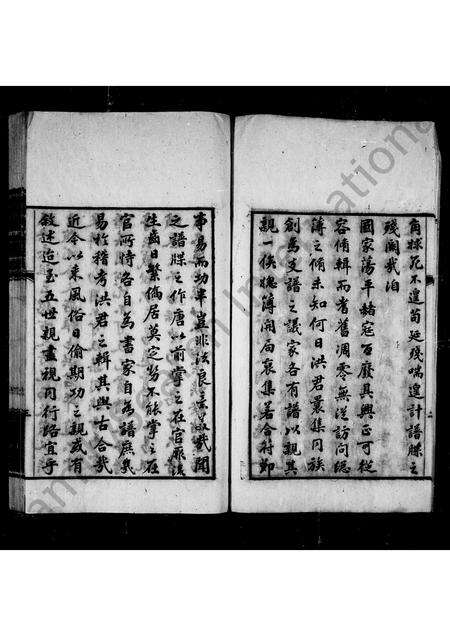 角採花不遑苟延殘喘遑計譜牒之
殘闕哉洎
國家蕩平赭寇百廢具興正可從
容脩輯而耆舊凋零無從訪問總
薄之脩未知何日洪君叢集同族
創為支譜之議家各有譜以親其
親一俟總簿開局裒集若合符節
事易而功半豈非法良意美哉聞
之譜牒之作唐以前掌之在官厥後
生齒日繁僑居莫定勢不能掌之在
官所恃各自為書家自為譜庶幾
易於稽考洪君之輯其與古合哉
近今以來風俗日偷期功之親或有
敘述迨至五世親盡視同行路宜乎